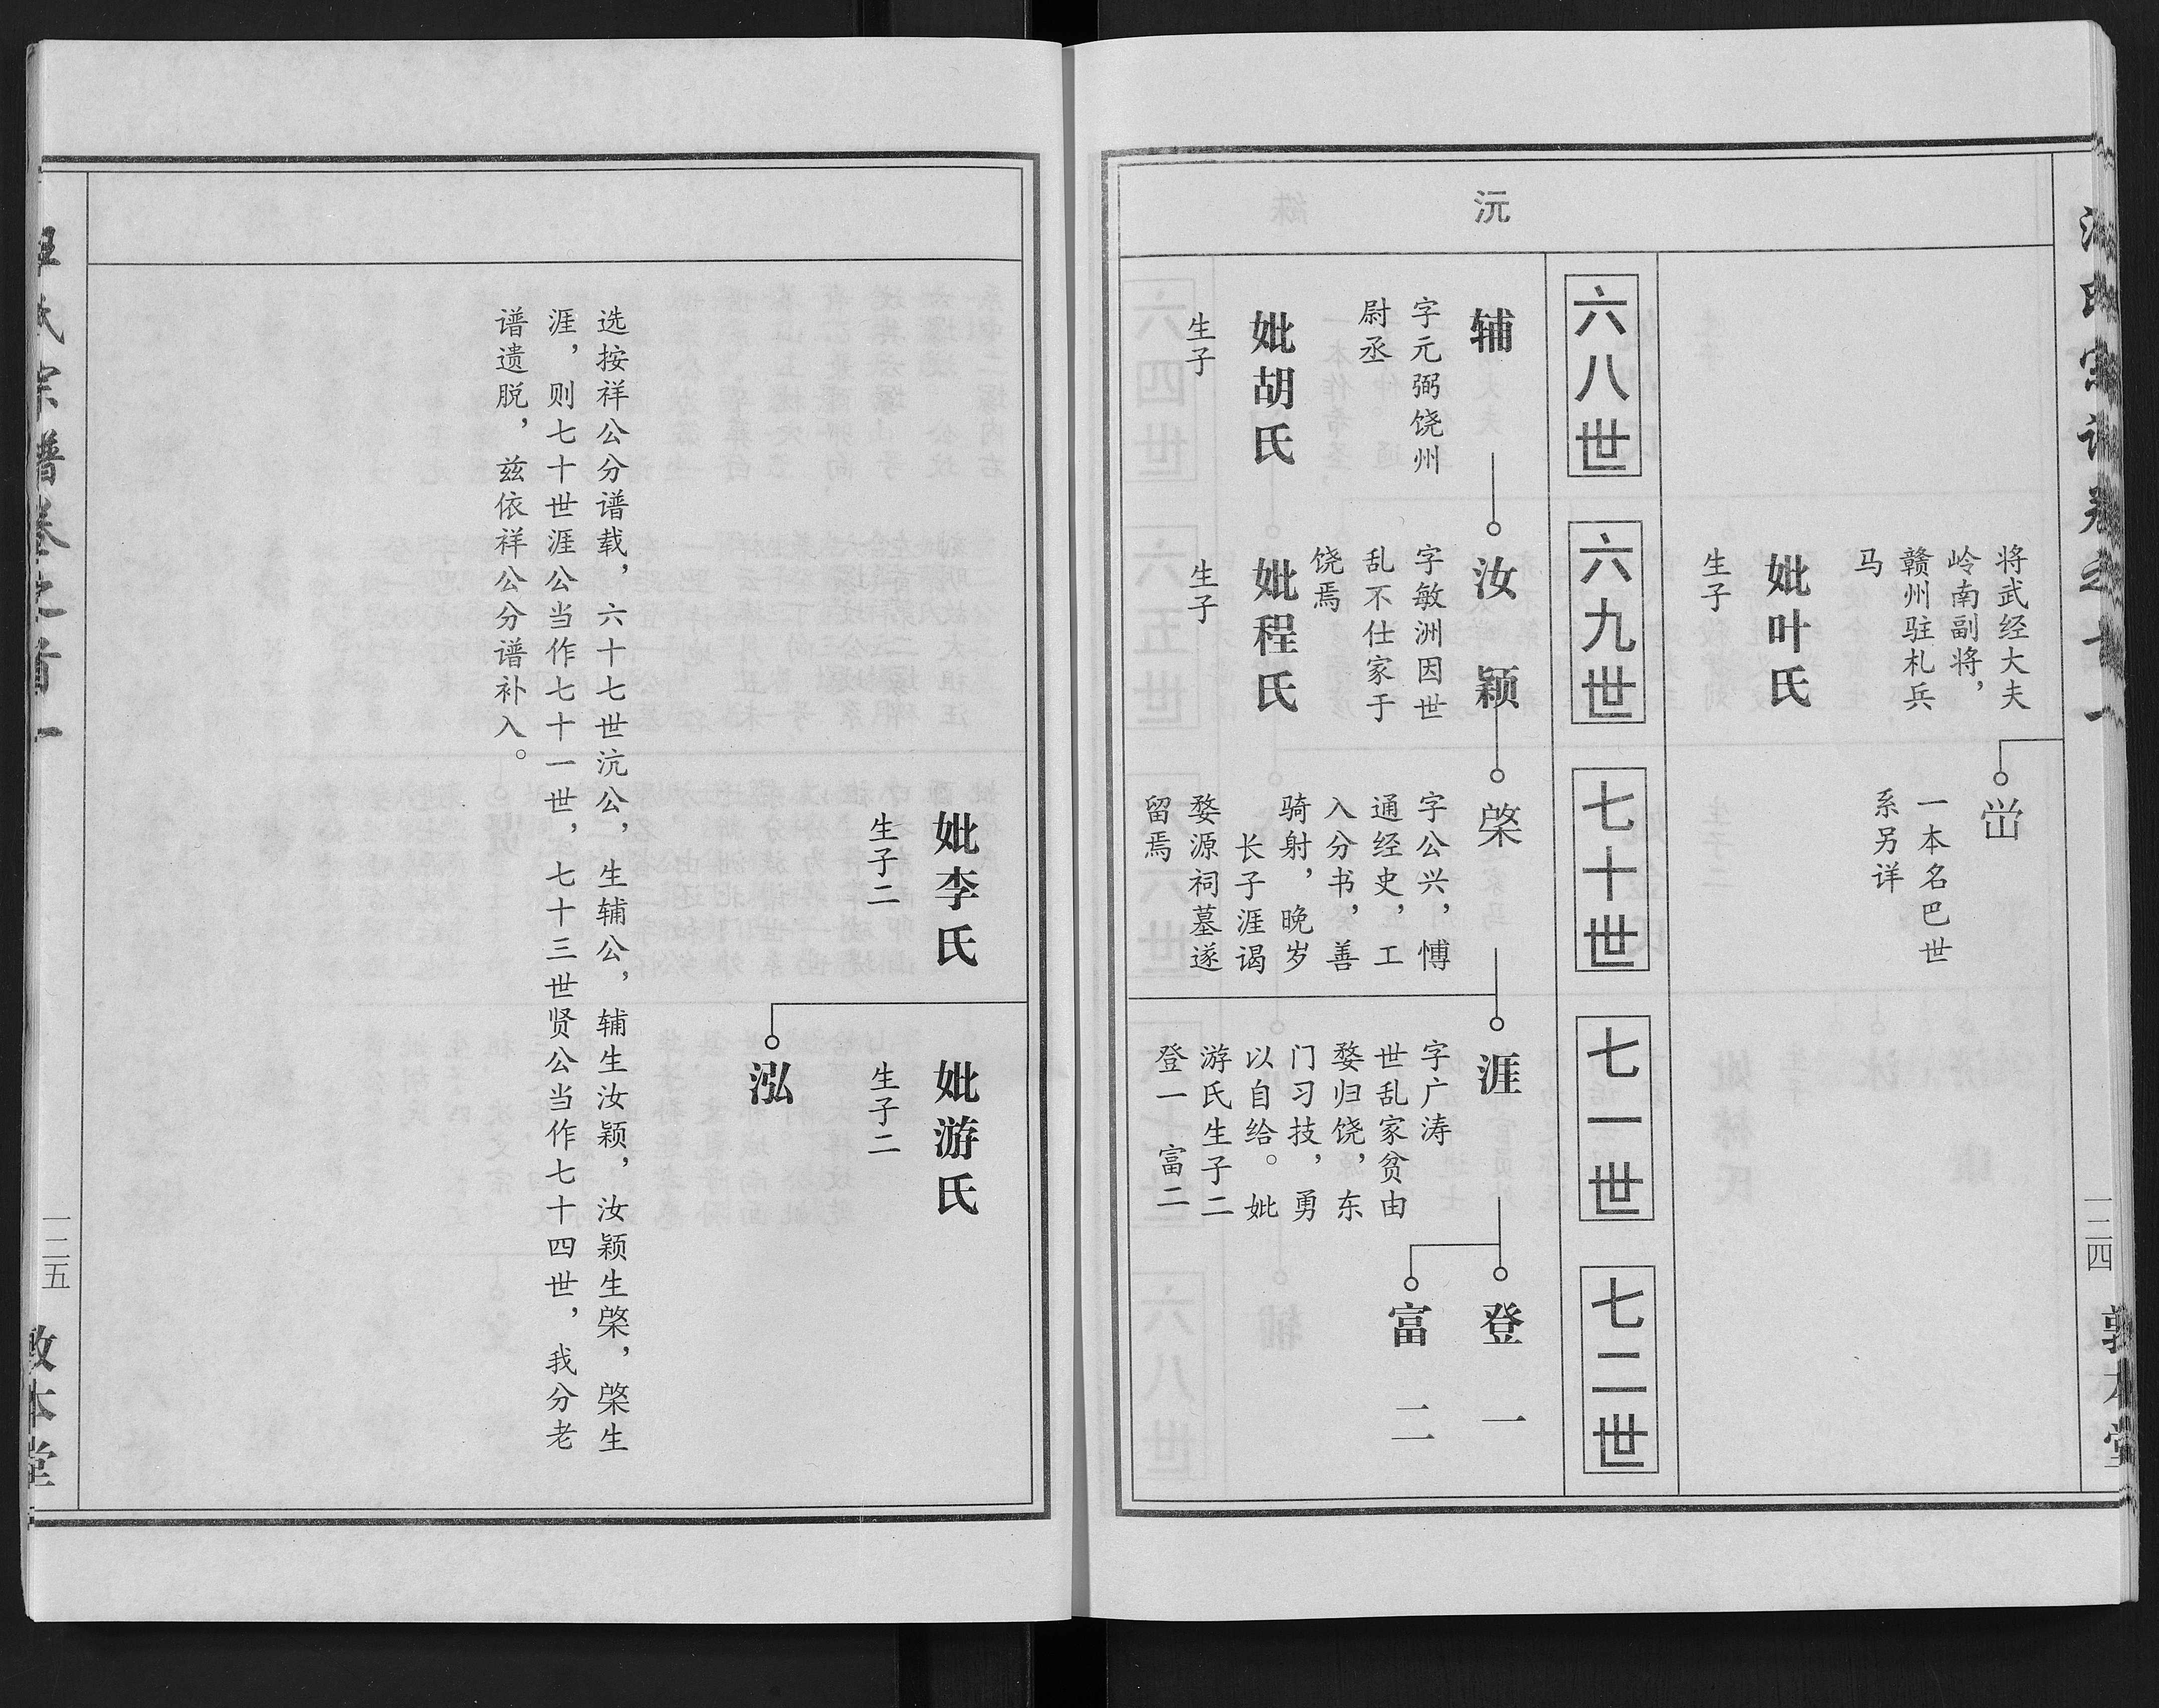 将武经大夫
岭南副将，
赣州驻札兵
马
妣叶氏
生子
峃
一本名巴世
系另详
六八世
六九世
七十世
七一世
七二世
沅
辅
字元弼饶州
尉丞
妣胡氏
生子
汝颖
字敏洲因世
乱不仕家于
饶焉
妣程氏
生子
棨
字公兴，博
通经史，工
入分书，善
骑射，晚岁
长子涯谒
婺源祠墓遂
留焉
涯
字广涛
世乱家贫由
婺归饶，东
门习技，勇
以自给。妣
游氏生子二
登一 富二
登一
富二
一二四
敦本堂
妣李氏
生子二
妣游氏
生子二
泓
选按祥公分谱载，六十七世沆公，生辅公，辅生汝颖，汝颖生棨，棨生
涯，则七十世涯公当作七十一世，七十三世贤公当作七十四世，我分老
谱遗脱，兹依祥公分谱补入。
氏宗谱卷之首一
一二五
敦本堂